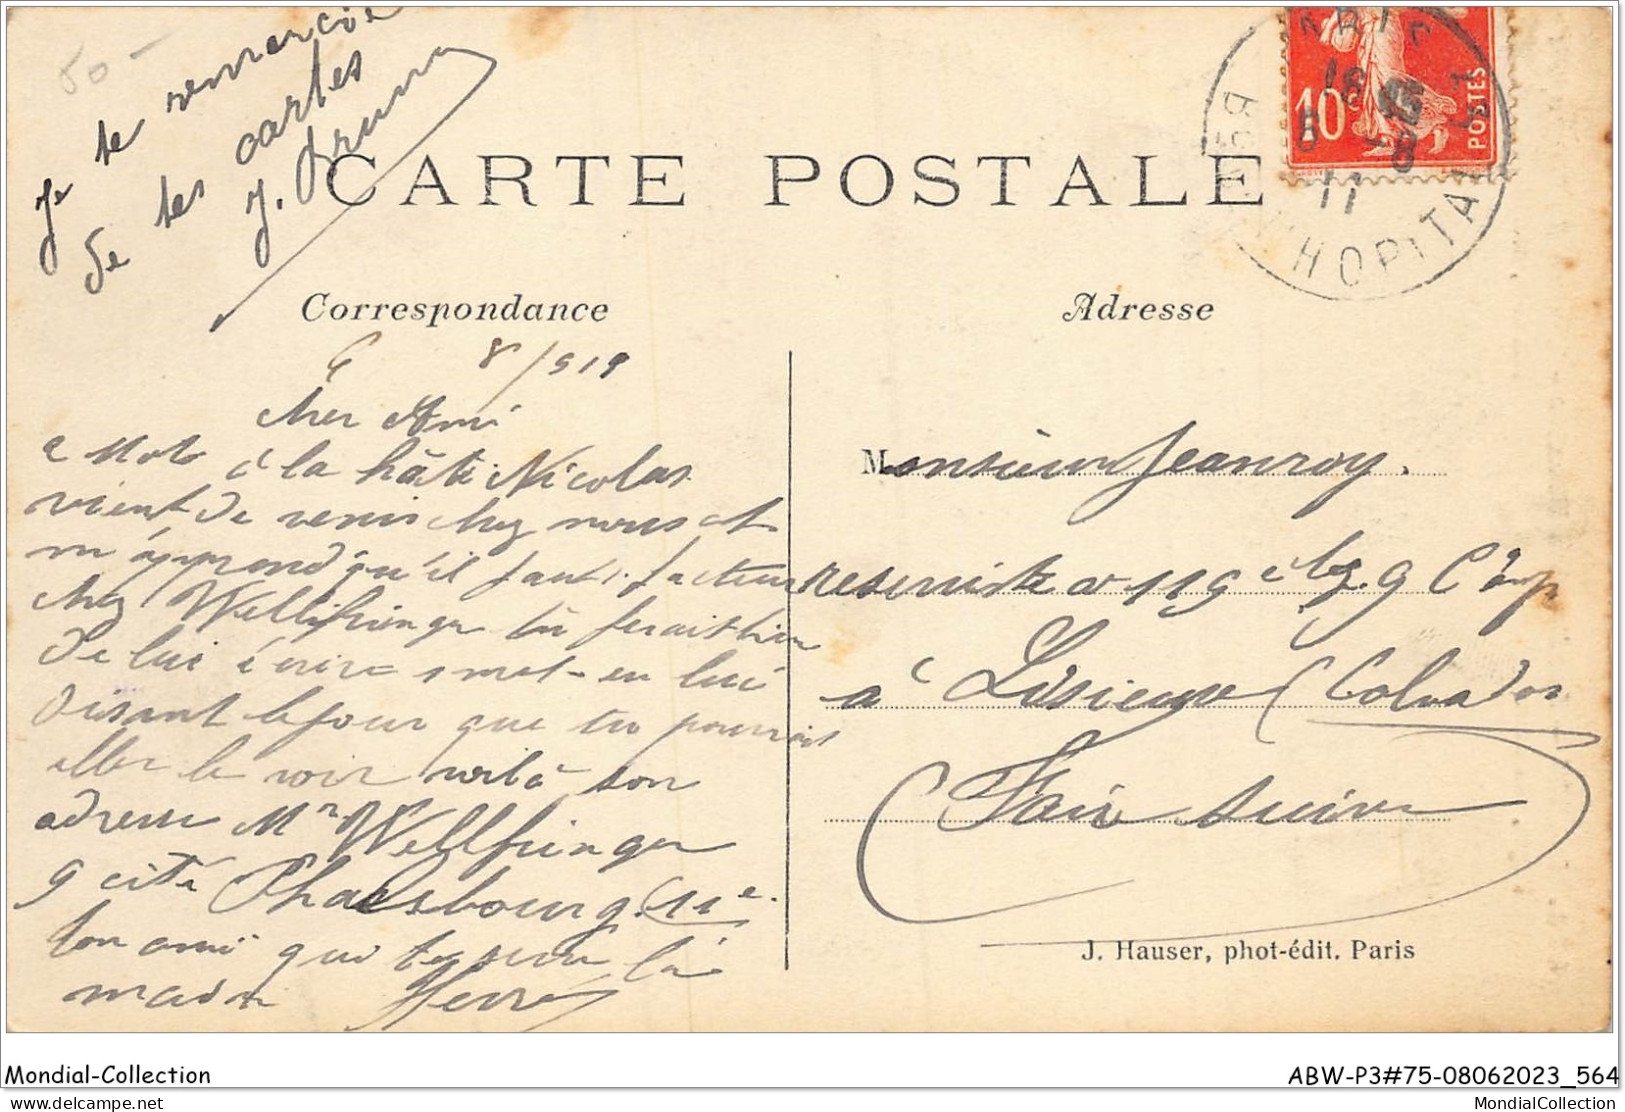 60 -
Je te remercie
de tes cartes
J. Brunn
CARTE POSTALE
10c POSTES
PARIS
BD DE L'HOPITAL
18
8 - 8
11
Correspondance
Adresse
6 8/911
cher Ami
2 Mots à la hâte Nicolas
vient de venir chez nous et
m'apprend qu'il faut facteur
chez Wellfringer tu ferait bien
de lui écrire 1 mot en lui
disant le jour que tu pourrais
aller le voir voilà son
adresse Mr Wellfringer
9 cité Phalsbourg (11e.
ton ami qui te serre la
main Henri
Monsieur Jeanroy.
reserviste au 119e de lg. 9 Comp
à Lisieux (Calvados
Faire suivre
J. Hauser, phot-édit. Paris
Mondial-Collection
ABW-P3#75-08062023_564
delcampe.net
MondialCollection